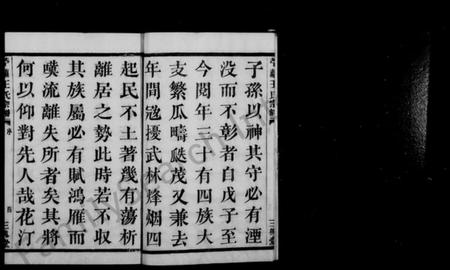 子孫以神其守必有湮
没而不彰者自戊子至
今閱年三十有四族大
支繁瓜疇瓞茂又兼去
年間冦擾武林烽烟四
起民不土著幾有蕩析
離居之勢此時若不収
其族屬必有賦鴻雁而
嘆流離失所者矣其將
何以仰對先人哉花汀